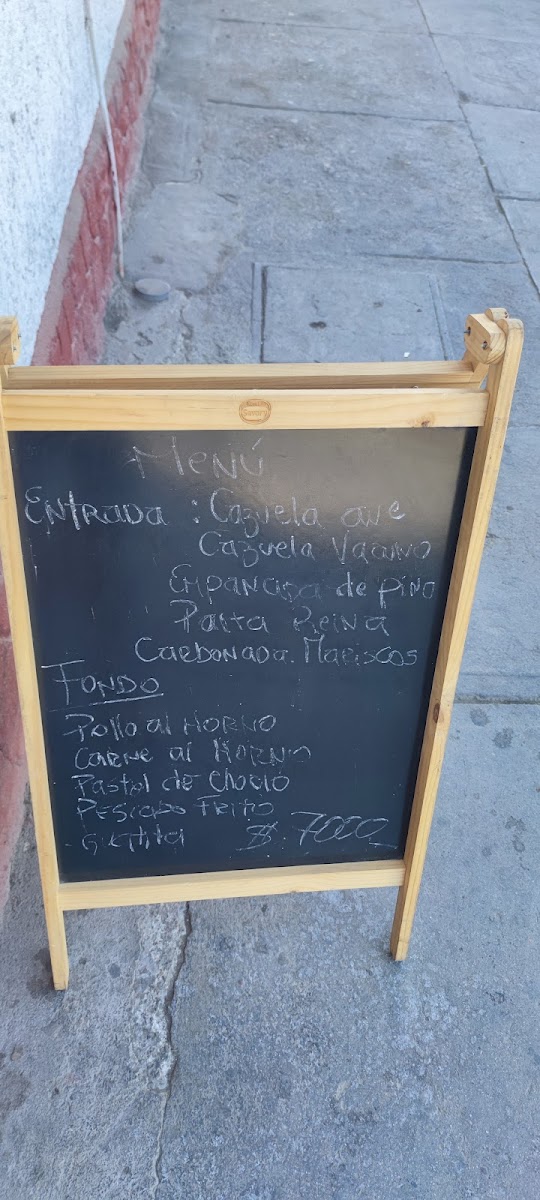 Savory
Menú
Entrada : Cazuela ave
Cazuela Vacuno
Empanada de pino
Palta Reina
Carbonada Mariscos
Fondo
Pollo al Horno
Carne al Horno
Pastel de Choclo
Pescado Frito
Guatita $ 7000